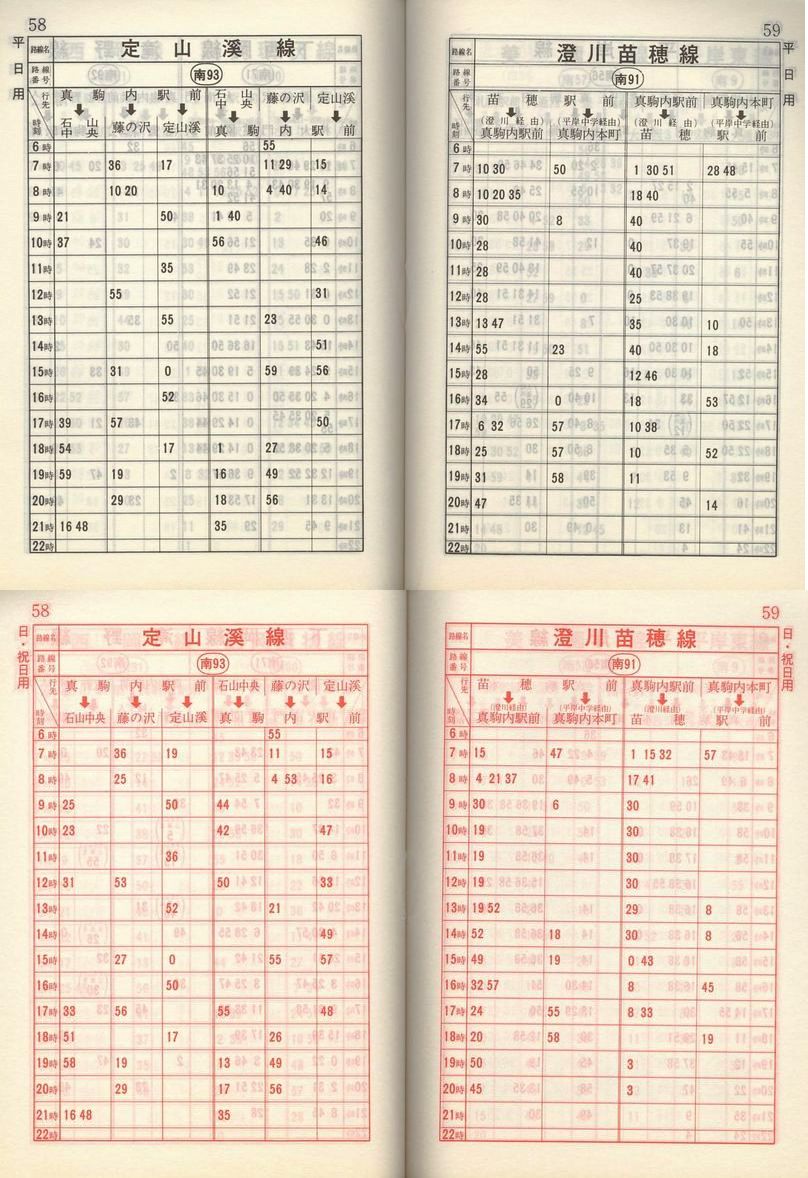 58
平日用
路線名 定山溪線
路線番号 南93
行先 時刻
真駒内駅前 石山中央 藤の沢 定山溪
石山中央 藤の沢 定山溪 真駒内駅前
6時 55
7時 36 17 11 29 15
8時 10 20 10 4 40 14
9時 21 50 1 40
10時 37 56 46
11時 35
12時 55 31
13時 55 23
14時 51
15時 31 0 59 56
16時 52
17時 39 57 50
18時 54 17 1 27
19時 59 19 16 49
20時 29 18 56
21時 16 48 35
22時
59
平日用
路線名 澄川苗穂線
路線番号 南91
行先 時刻
苗穂駅前 真駒内駅前 真駒内本町
(澄川経由) (平岸中学経由) (澄川経由) (平岸中学経由)
真駒内駅前 真駒内本町 苗穂駅前
6時
7時 10 30 50 1 30 51 28 48
8時 10 20 35 18 40
9時 30 8 40
10時 28 40
11時 28 40
12時 28 25
13時 13 47 35 10
14時 55 23 40 18
15時 28 12 46
16時 34 0 18 53
17時 6 32 57 10 38
18時 25 57 10 52
19時 31 58 11
20時 47 14
21時
22時
58
日・祝日用
路線名 定山溪線
路線番号 南93
行先 時刻
真駒内駅前 石山中央 藤の沢 定山溪
石山中央 藤の沢 定山溪 真駒内駅前
6時 55
7時 36 19 11 15
8時 25 4 53 16
9時 25 50 44
10時 23 42 47
11時 36
12時 31 53 50 33
13時 52 21
14時 49
15時 27 0 55 57
16時 50
17時 33 56 55 48
18時 51 17 26
19時 58 19 13 49
20時 29 17 56
21時 16 48 35
22時
59
日・祝日用
路線名 澄川苗穂線
路線番号 南91
行先 時刻
苗穂駅前 真駒内駅前 真駒内本町
(澄川経由) (平岸中学経由) (澄川経由) (平岸中学経由)
真駒内駅前 真駒内本町 苗穂駅前
6時
7時 15 47 1 15 32 57
8時 4 21 37 17 41
9時 30 6 30
10時 19 30
11時 19 30
12時 19 30
13時 19 52 29 8
14時 52 18 30 8
15時 49 19 0 43
16時 32 57 8 45
17時 24 55 8 33
18時 20 58 19
19時 50 3
20時 45 3
21時
22時